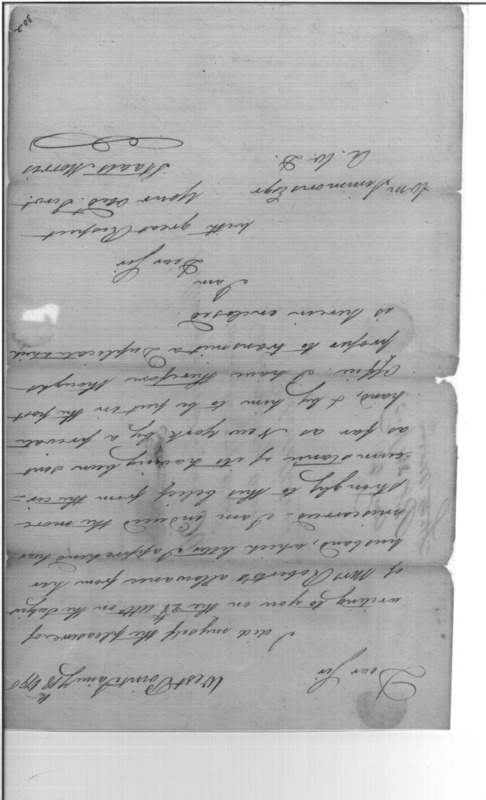 West Point Jany 18th 1798
Dear Sir
I did myself the pleasure of
writing to you on the Ulto on the subject
of Mrs Roberts allowance from her
husband, which letter I apprehend has
miscarried - I am induced the more
strongly to this belief from the cir=
=cumstance of its having been sent
as far as New York by a private
hand, & by him to be put in the post
Office. I have therefore thought
proper to transmit a Duplicate which
is herein enclosed.
I am
Dear Sir
with great Respect
Your Obed. Servt
Staats Morris
Wm Simmons Esqr
A. W. D.